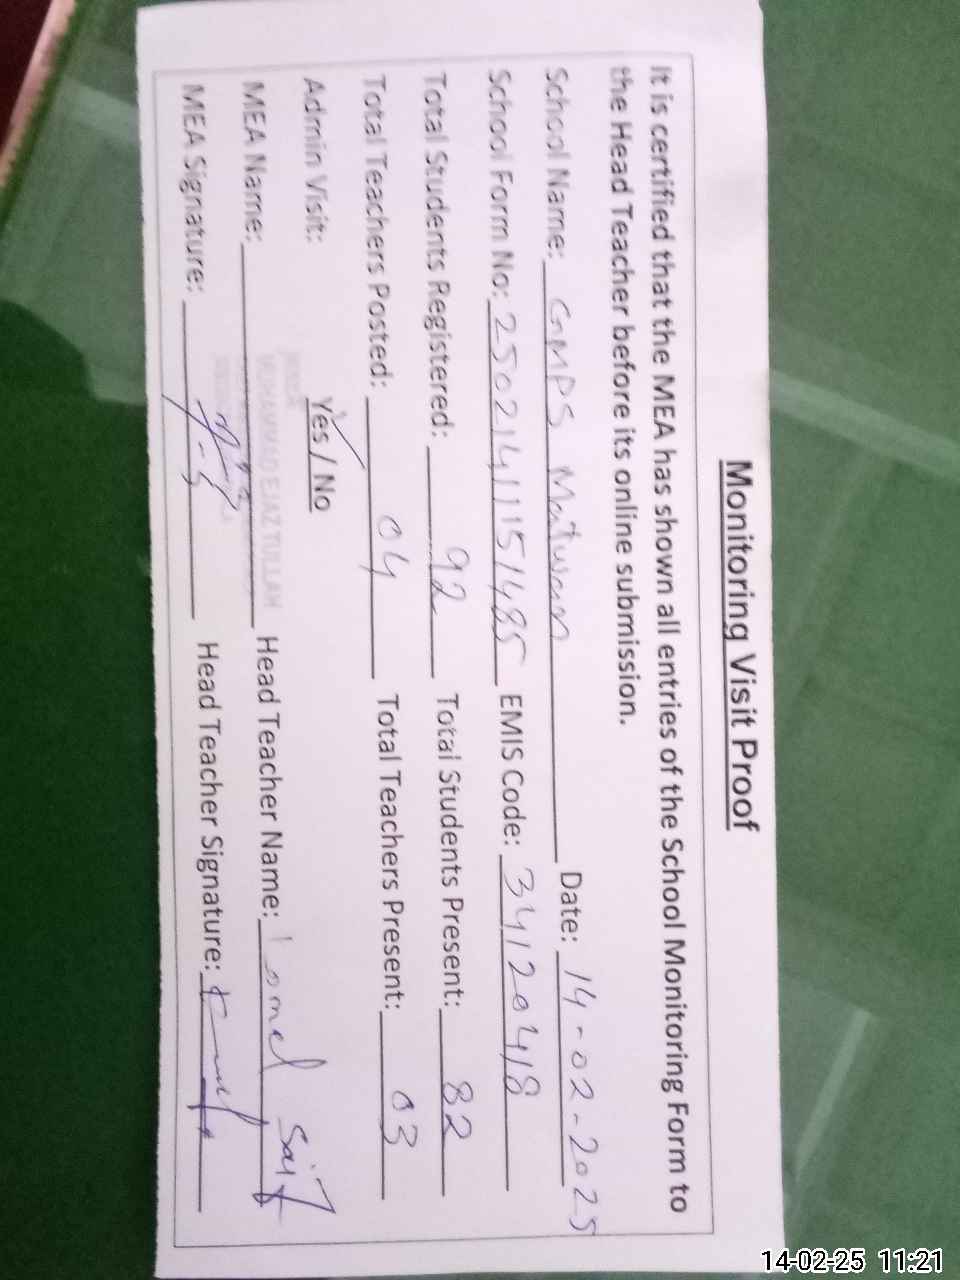 Monitoring Visit Proof
It is certified that the MEA has shown all entries of the School Monitoring Form to
the Head Teacher before its online submission.
School Name: GMPS Matwani Date: 14-02-2025
School Form No: 2502141151485 EMIS Code: 34120418
Total Students Registered: 92 Total Students Present: 82
Total Teachers Posted: 04 Total Teachers Present: 03
Admin Visit: Yes / No
MEA Name: MUHAMMAD EJAZ TULLAH Head Teacher Name: Saif
MEA Signature: Head Teacher Signature:
14-02-25 11:21